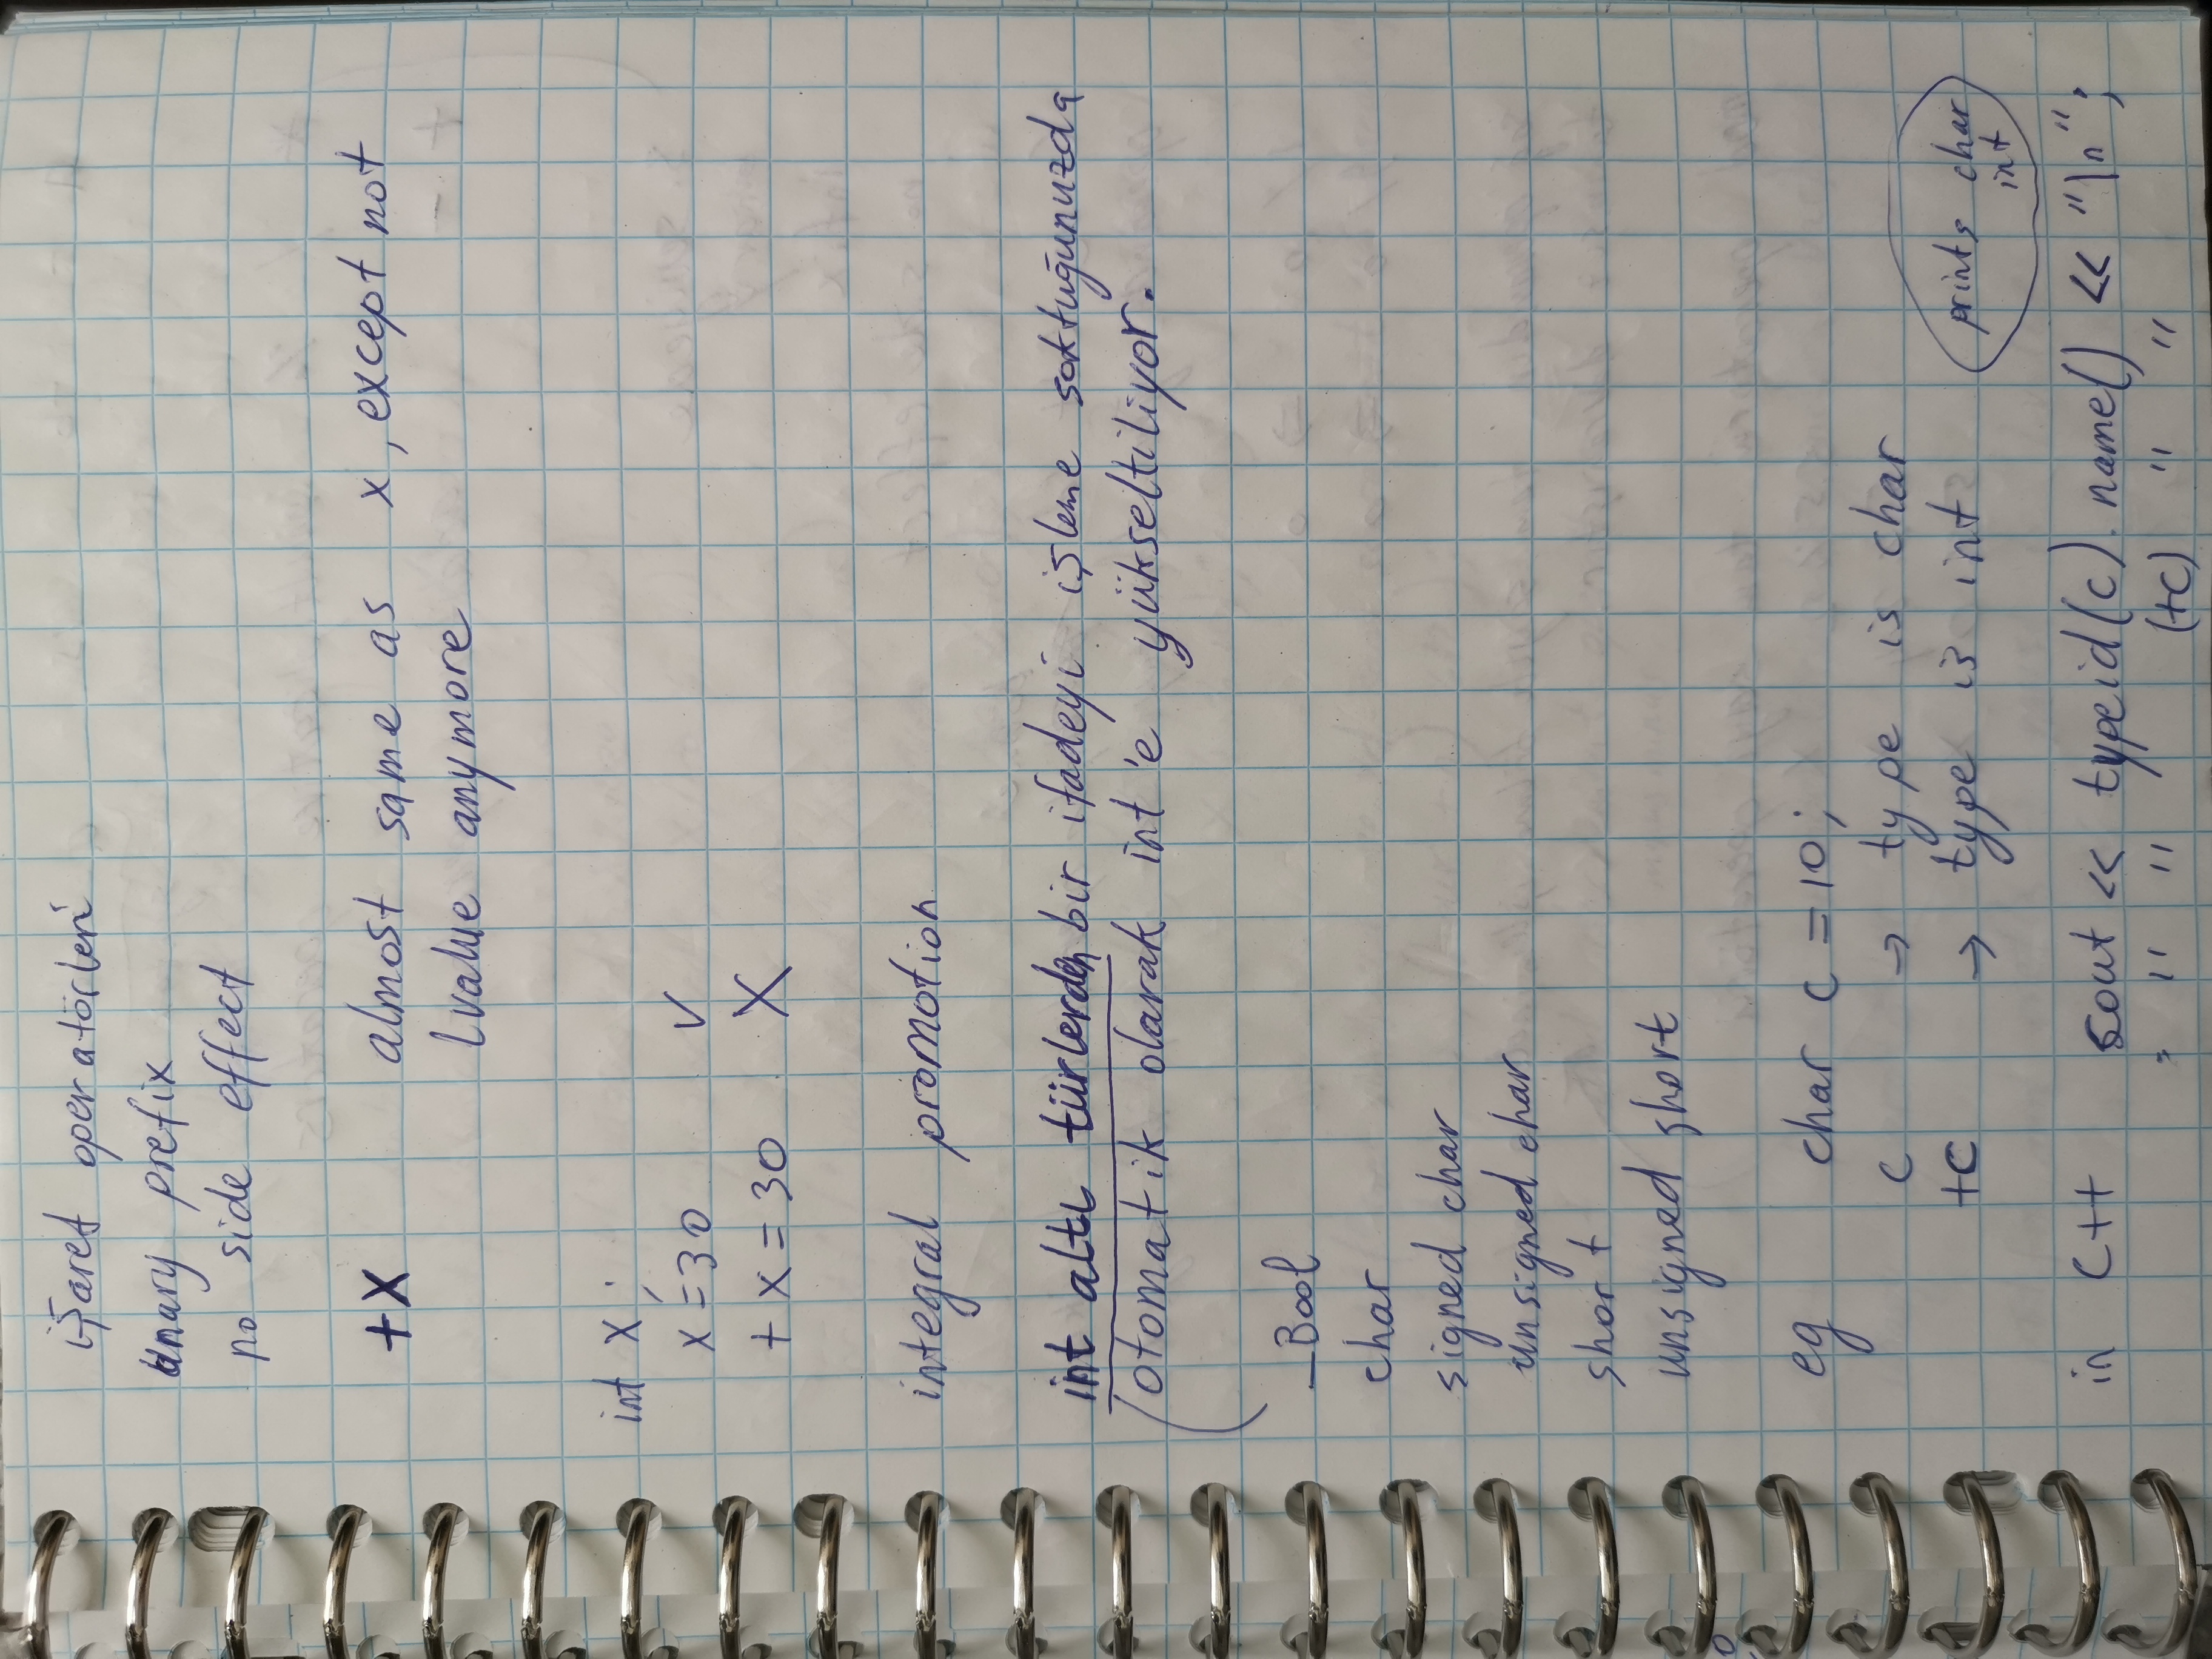 işaret operatörleri
unary prefix
no side effect
+X almost same as x, except not
lvalue anymore
int x;
x = 30 ✓
+x = 30 X
integral promotion
int altı türlerden bir ifadeyi işleme soktuğunuzda
otomatik olarak int'e yükseltiliyor.
_Bool
char
signed char
unsigned char
short
unsigned short
eg char c = 10;
c → type is char
+c → type is int
prints char
int
in C++ cout << typeid(c).name() << "\n";
" " " (+c) " "